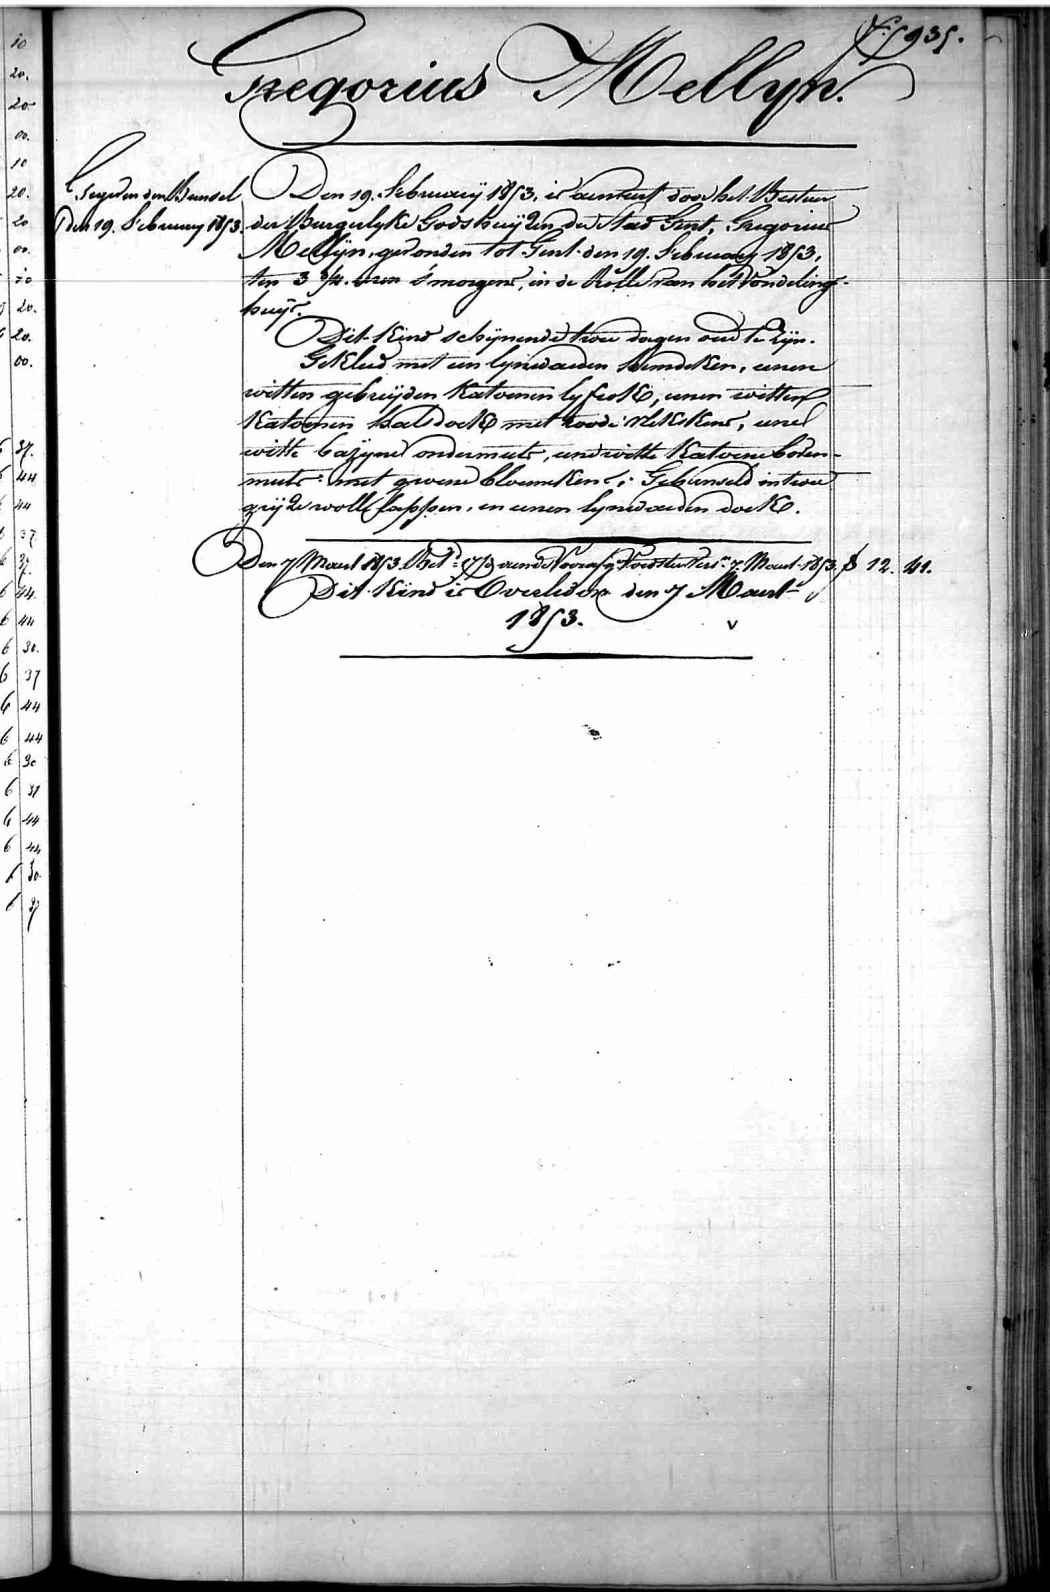 f.º 5935.
Gregorius Mellyn.
Den 19. February 1853, is aenveert door het Bestuer
der Burgerlyke Godshuyzen der Stad Gent, Gregorius
Mellyn, gevonden tot Gent den 19. February 1853,
ten 3 3/4. uren 's morgens, in de Rolle van het Vondeling-
huys.
Gegeven den Bunsel
den 19. February 1853.
Dit Kind schynende twee dagen oud te zyn.
Gekleed met een lynwaeden hemdeken, eenen
witten gebreyden Katoenen lyfrok, eenen witten
Katoenen halsdoek met roode vlekskens, eene
witte bazyne ondermuts, eene witte Katoene boven-
muts met groene bloemkens; Gebunseld in twee
gryze wolle lappen, en eenen lynwaeden doek.
Den 7 Maert 1853 Bet.d aen de Voorsz. Voedster Vers.n 7. Maert 1853. f 12. 41.
Dit Kind is Overleden den 7 Maert
1853. v
10
20.
20
00.
10
20.
20
00.
10
20.
20.
00.
37.
44
44
37
37.
44.
6 44
6 30.
6 37
6 44
6 44
6 30
6 37
6 44
6 44
6 30
6 37